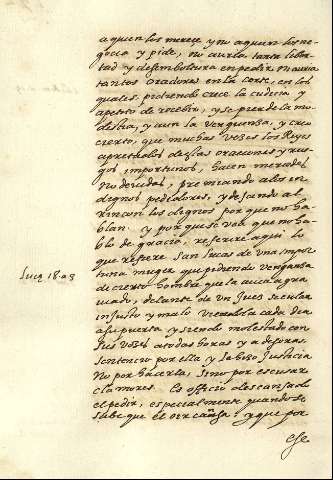 a quien los merece y no a quien los ne-
gocia y pide, no auria tanta liber-
tad y desemboltura en pedir ni auria
tantos oradores en la corte, en los
quales pidiendo crece la cudicia y
apetito de recebir, y se pierde la mo-
destia, y aun la verguenza, y creo
cierto, que muchas vezes los Reyes
apretados destas oraciones y rue-
gos importunos, hacen mercedes
no deuidas, premiando a los in-
dignos pedidores, y dejando al
rincon los dignos porque no ha-
blan y porque se vea que no ha-
blo de gracia, referire aqui lo
que refiere San Lucas de una impor-
tuna muger que pidiendo venganza
de cierto hombre que la auia agra-
uiado, delante de un Juez secular
injusto y malo viendola cada dia
a su puerta y siendo molestado con
sus vozes a todas horas y a desoras
sentencio por ella y la hizo Justicia
No por hacerla, sino por escusar
clamores. Es officio descansado
el pedir, especialmente quando se
sabe que el oir cansa: y que por
ese
Lucæ 18. a 3